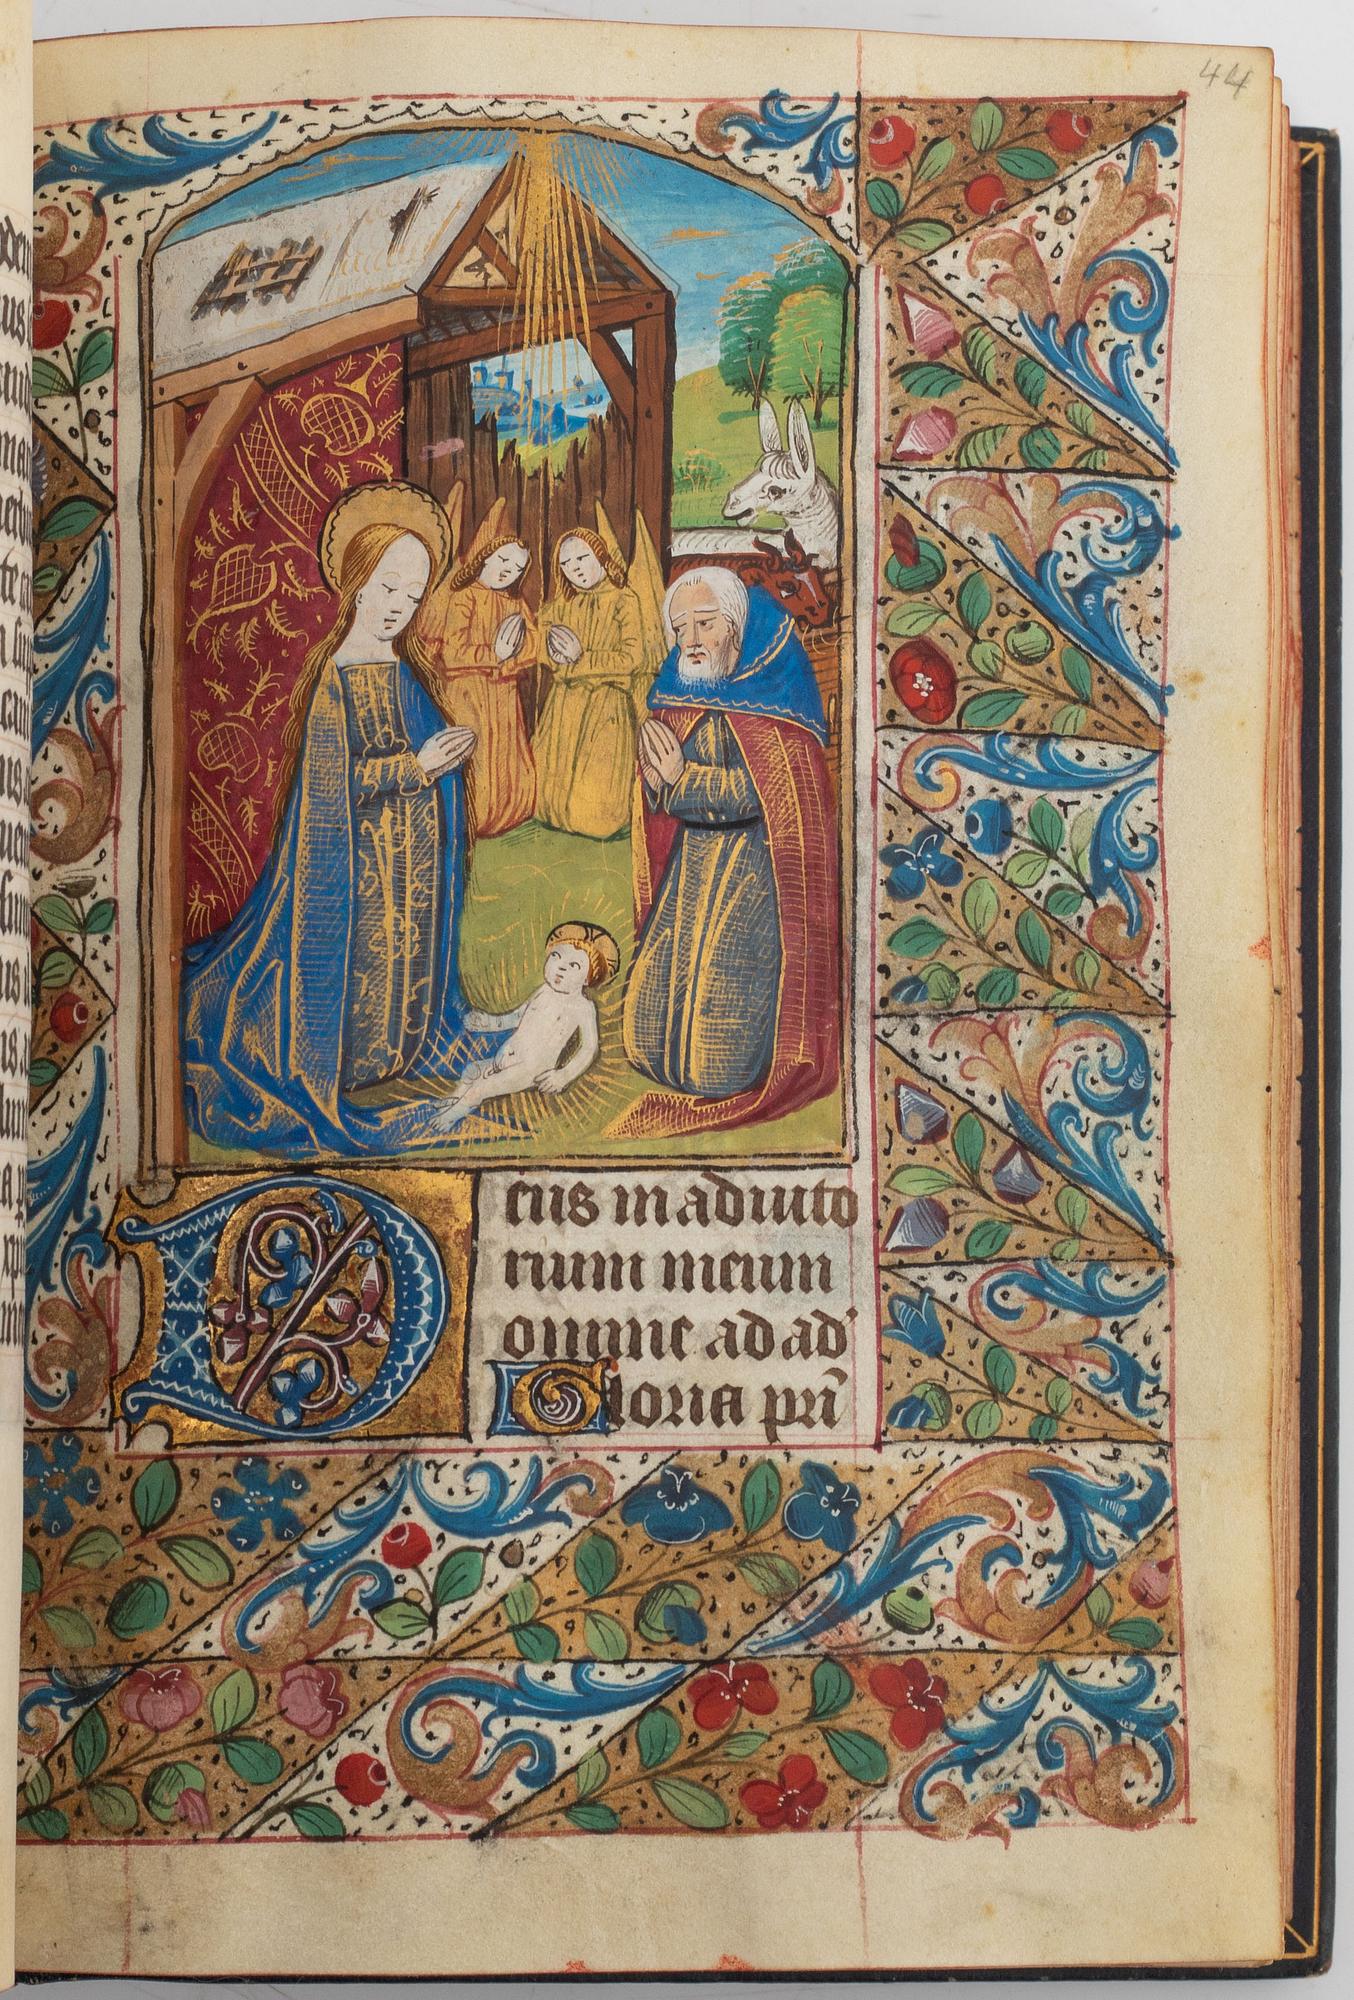 44
Deus in adiuto
rium meum
omine ad ad'
Gloria pri̅